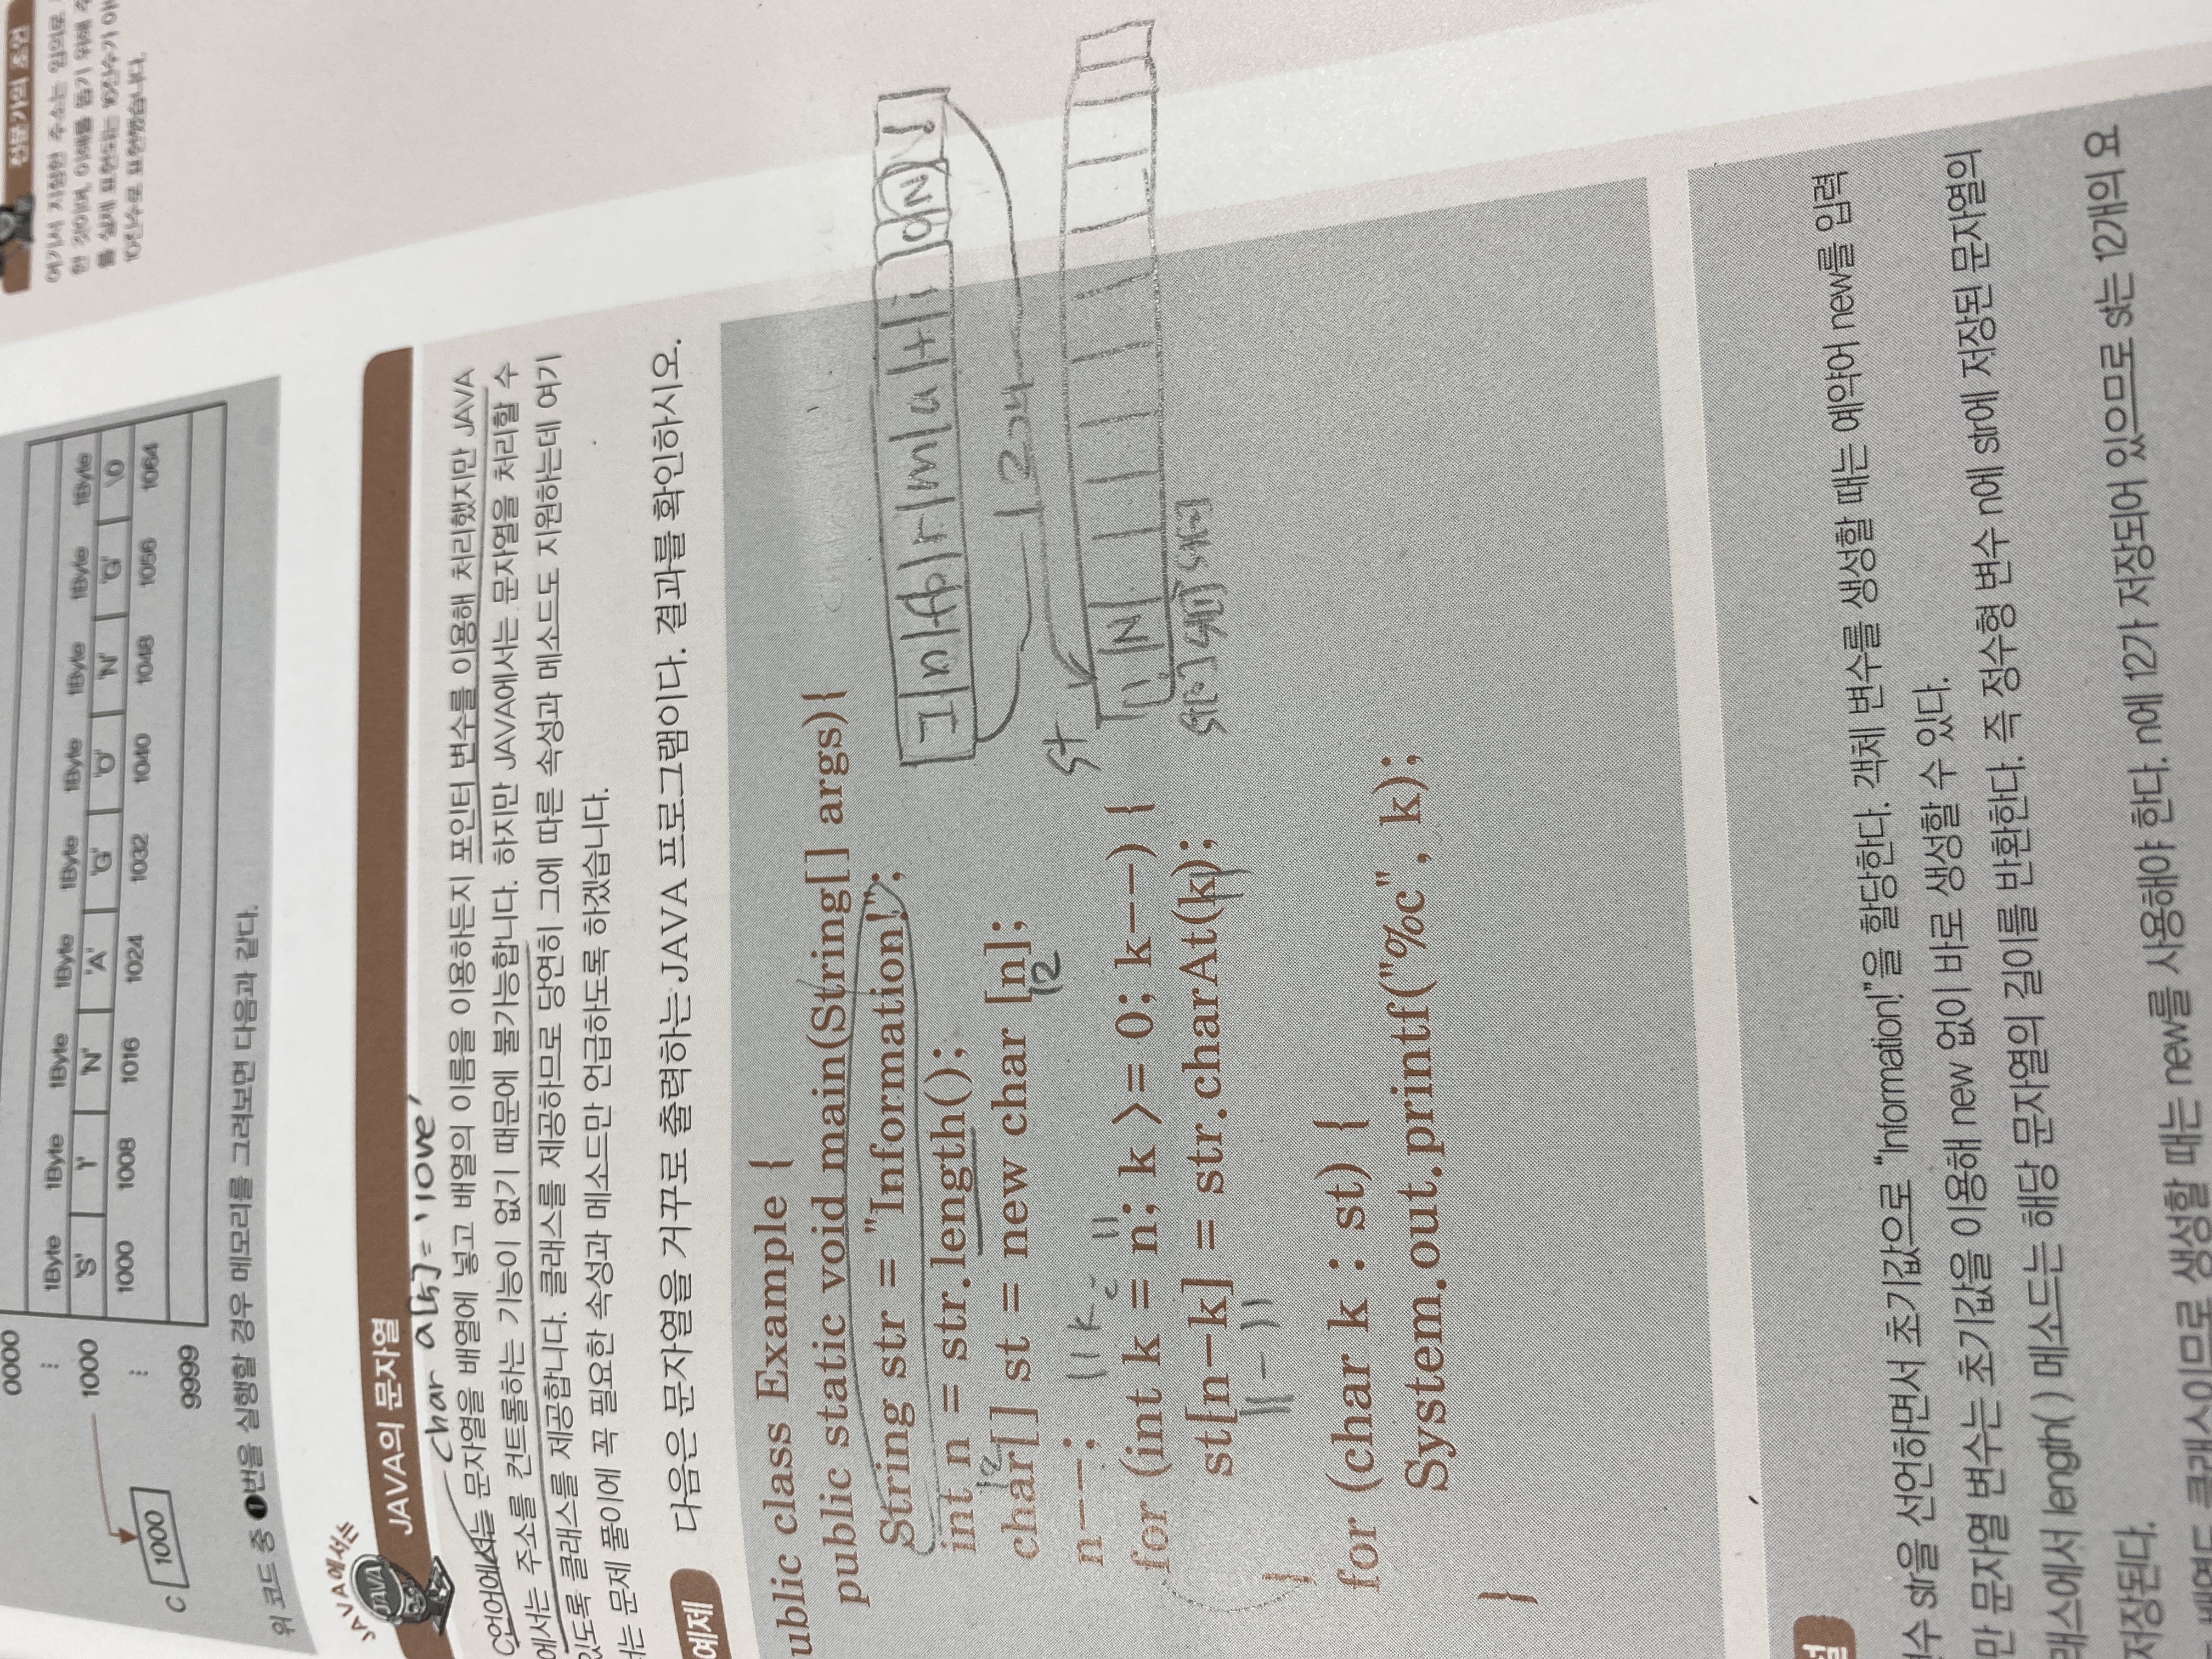 전문가의 조언
여기서 지정한 주소는 임의로
한 것이며, 이해를 돕기 위해
를 실제 표현되는 16진수가 아
10진수로 표현했습니다.
0000
⋮
1Byte 1Byte 1Byte 1Byte 1Byte 1Byte 1Byte 1Byte 1Byte
1000 'S' 'Y' 'N' 'A' 'G' 'O' 'N' 'G' \0
⋮ 1000 1008 1016 1024 1032 1040 1048 1056 1064
9999
C 1000
위 코드 중 ❶번을 실행할 경우 메모리를 그려보면 다음과 같다.
JAVA에서는
JAVA
JAVA의 문자열
char a[5]='love'
C언어에서는 문자열을 배열에 넣고 배열의 이름을 이용하든지 포인터 변수를 이용해 처리했지만 JAVA
에서는 주소를 컨트롤하는 기능이 없기 때문에 불가능합니다. 하지만 JAVA에서는 문자열을 처리할 수
있도록 클래스를 제공합니다. 클래스를 제공하므로 당연히 그에 따른 속성과 메소드도 지원하는데 여기
서는 문제 풀이에 꼭 필요한 속성과 메소드만 언급하도록 하겠습니다.
예제 다음은 문자열을 거꾸로 출력하는 JAVA 프로그램이다. 결과를 확인하시오.
ublic class Example {
public static void main(String[] args){
String str = "Information!";
int n = str.length();
12
char[] st = new char [n];
12
n--;
11 k= 11
for (int k = n; k >= 0; k--) {
st[n-k] = str.charAt(k);
11-11 11
}
for (char k : st) {
System.out.printf("%c", k);
}
I n f o r m a t i o n !
st
! N
st[0] st[1] st[2]
변수 str을 선언하면서 초기값으로 "Information!"을 할당한다. 객체 변수를 생성할 때는 예약어 new를 입력
만 문자열 변수는 초기값을 이용해 new 없이 바로 생성할 수 있다.
래스에서 length( ) 메소드는 해당 문자열의 길이를 반환한다. 즉 정수형 변수 n에 str에 저장된 문자열의
저장된다.
클래스이므로 생성할 때는 new를 사용해야 한다. n에 12가 저장되어 있으므로 st는 12개의 요